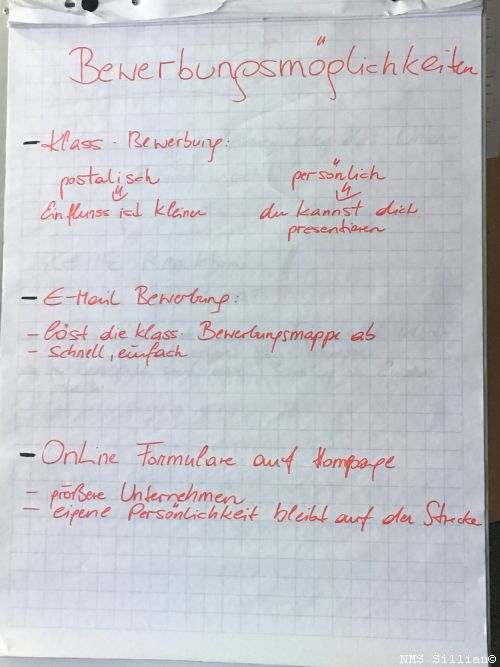 Bewerbungsmöglichkeiten
- Klass. Bewerbung:
postalisch persönlich
Einflunss ist kleiner du kannst dich
presentieren
- E-Mail Bewerbung:
- löst die klass. Bewerbungsmappe ab
- schnell, einfach
- Online Formulare auf Hompage
- größere Unternehmen
- eigene Persönlichkeit bleibt auf der Strecke
NMS Sillian©